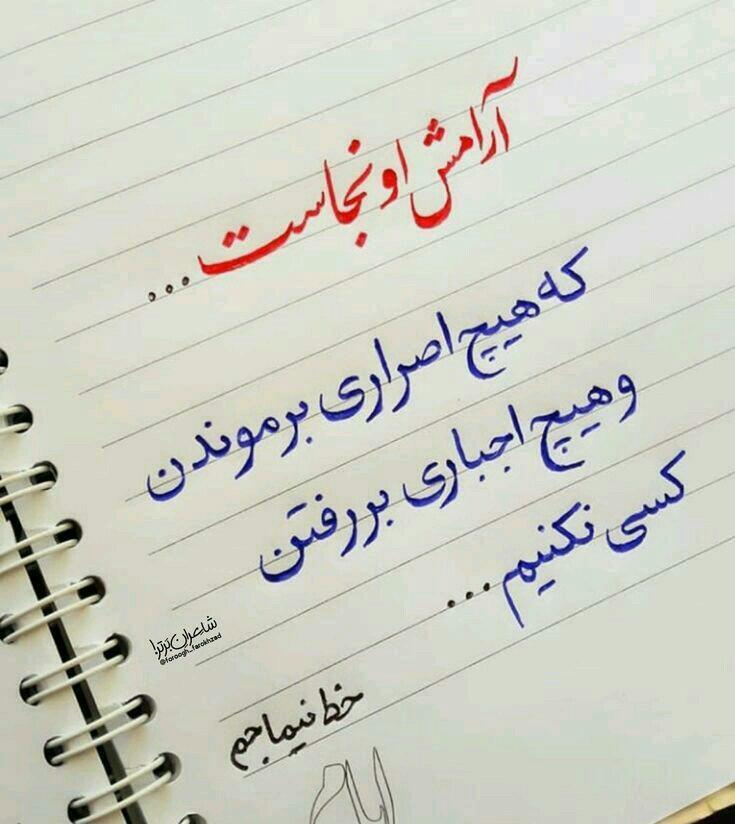 آرامش اونجاست...
که هیچ اصراری بر موندن
و هیچ اجباری بر رفتَن
کسی نکنیم...
شاعران برتر!
@foroogh_farokhzad
خط نیما جم